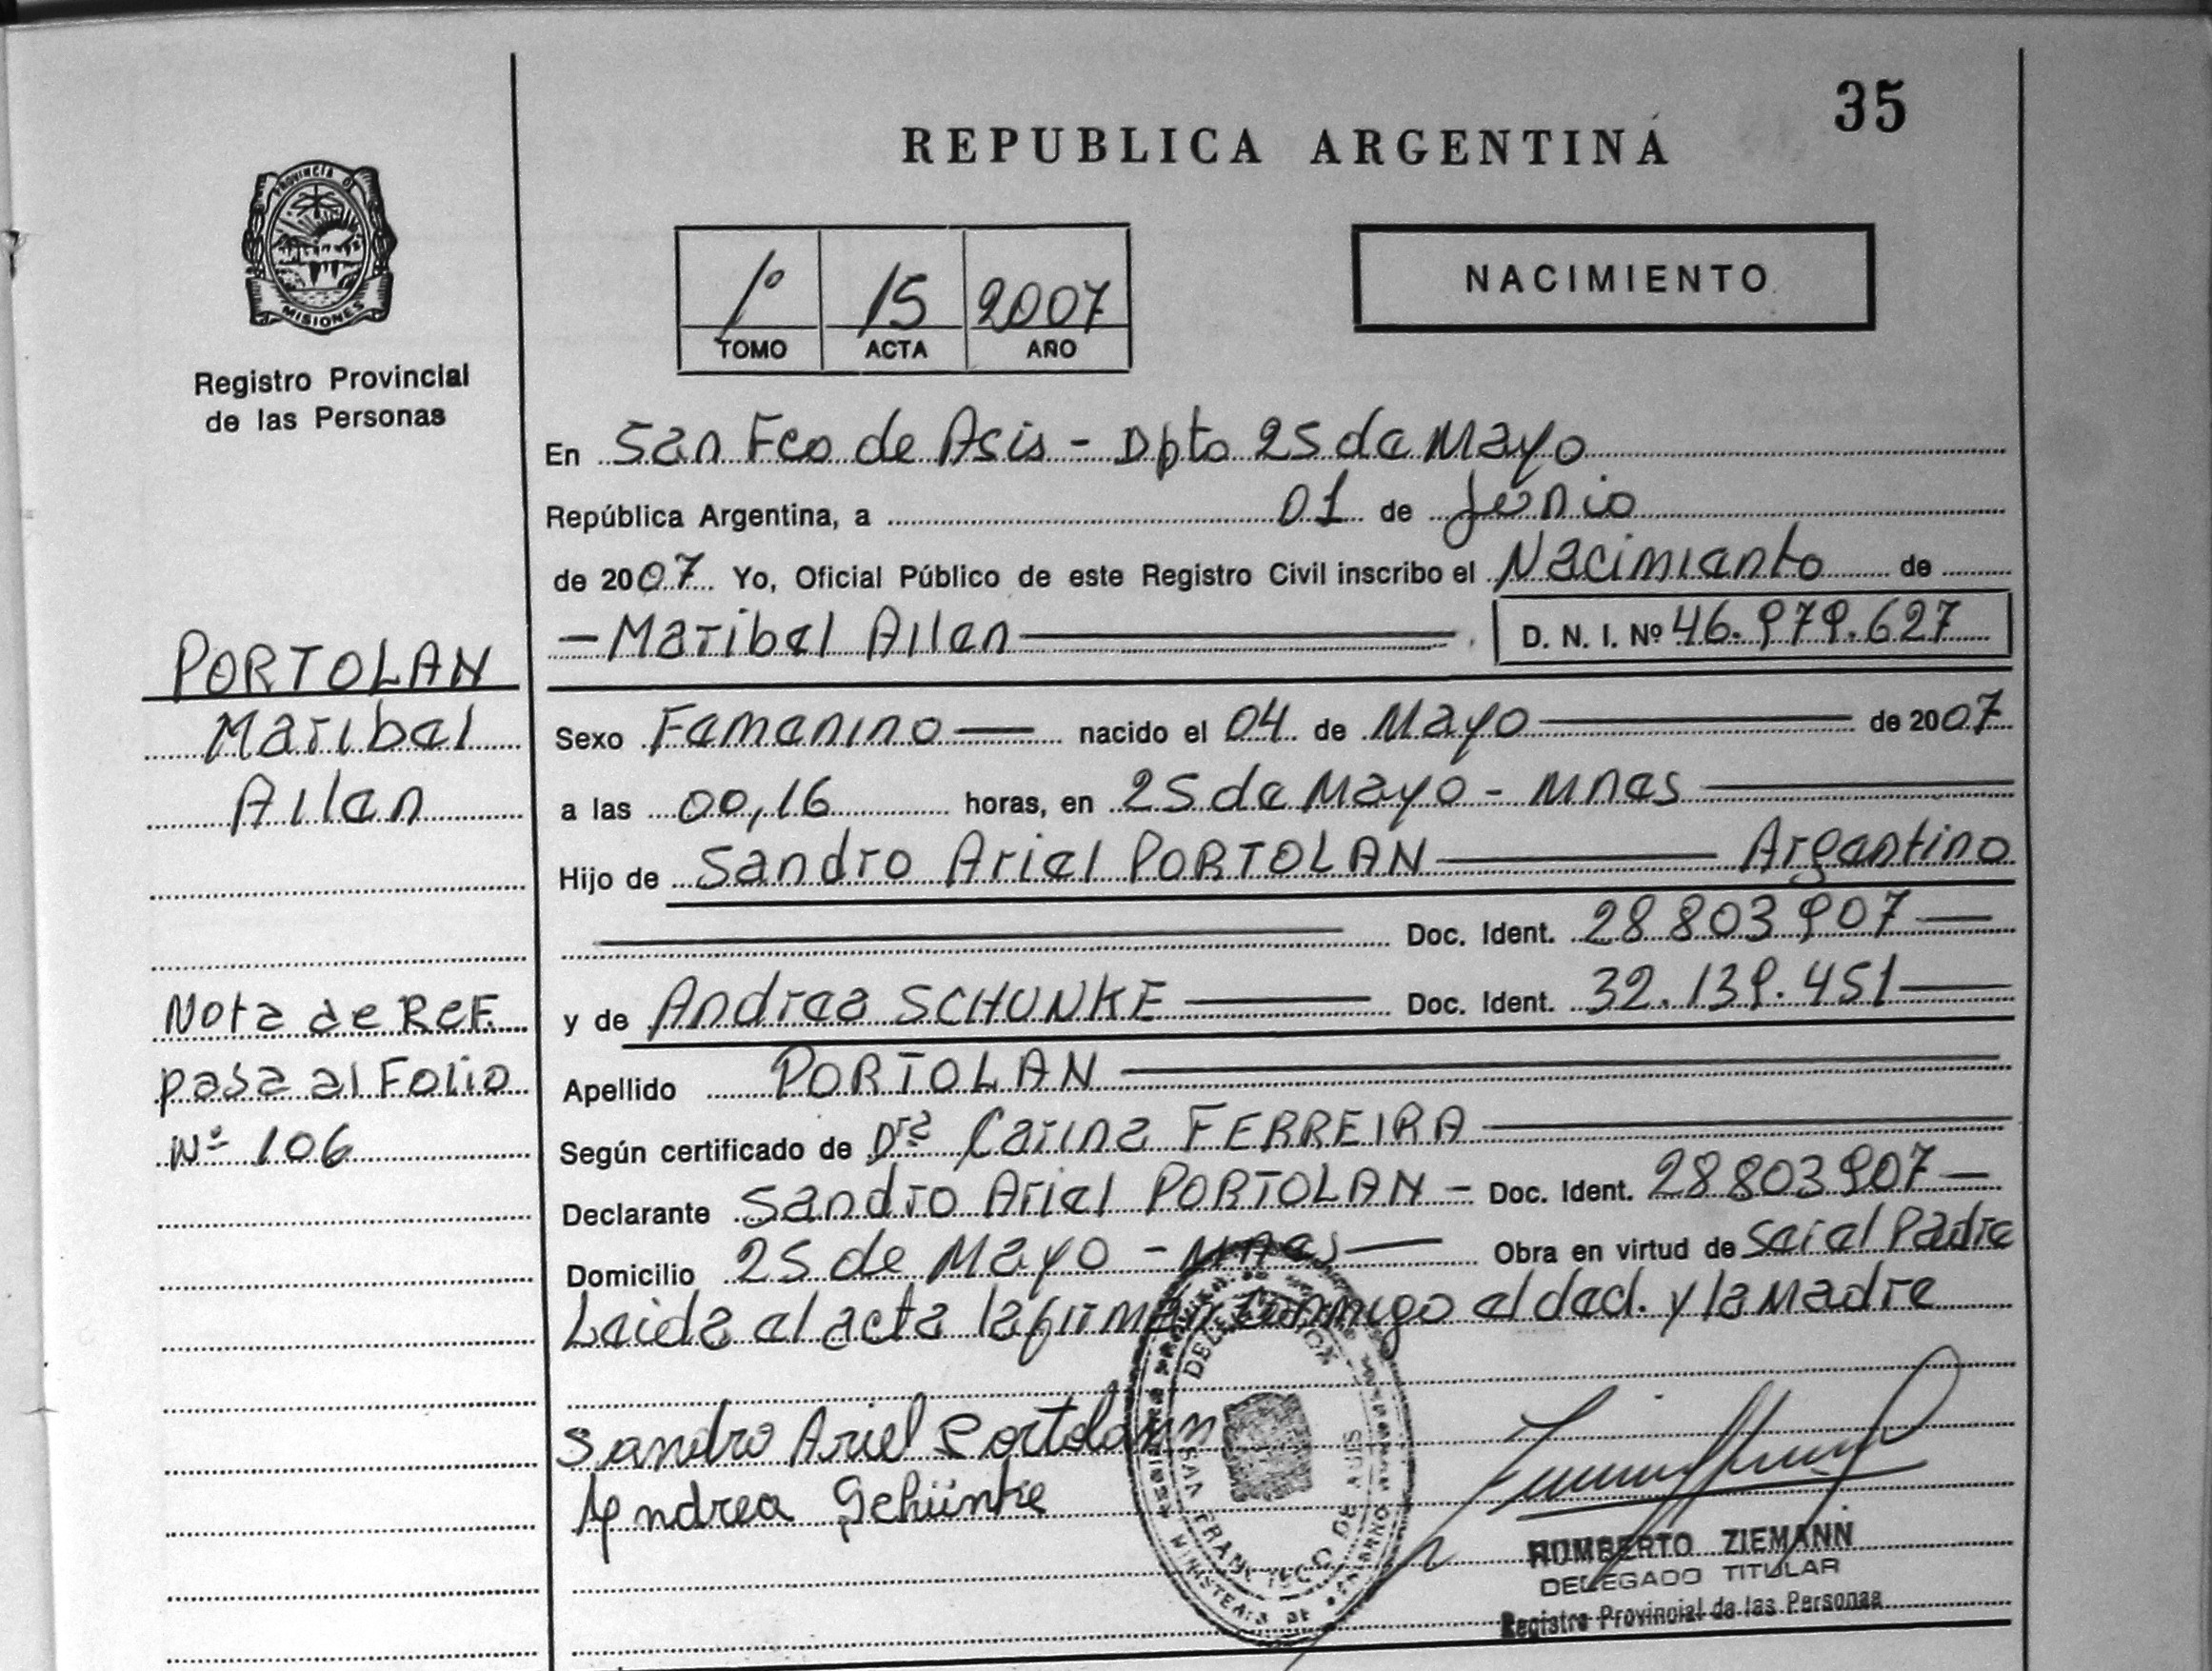 35
REPUBLICA ARGENTINA
PROVINCIA DE
MISIONES
Registro Provincial
de las Personas
1º 15 2007
TOMO ACTA AÑO
NACIMIENTO
En San Fco de Asis - Dpto 25 de Mayo
República Argentina, a 01 de Junio
de 2007 Yo, Oficial Público de este Registro Civil inscribo el Nacimiento de
- Maribel Ailen D. N. I. Nº 46.979.627
PORTOLAN
Maribel
Ailen
Sexo Femenino nacido el 04 de Mayo de 2007
a las 00,16 horas, en 25 de Mayo - Mnes
Hijo de Sandro Ariel PORTOLAN Argentino
Doc. Ident. 28 803 907
y de Andrea SCHUNKE Doc. Ident. 32.139.451
Nota de Ref.
pasa al Folio
Nº 106
Apellido PORTOLAN
Según certificado de Dra Carina FERREIRA
Declarante Sandro Ariel PORTOLAN - Doc. Ident. 28 803 907
Domicilio 25 de Mayo - Mnes Obra en virtud de Ser el Padre
Leida el acta la firman conmigo el decl. y la Madre
Sandro Ariel Portolan
Andrea Schünke
SAN FRANCISCO DE ASIS
HUMBERTO ZIEMANN
DELEGADO TITULAR
Registro Provincial de las Personas